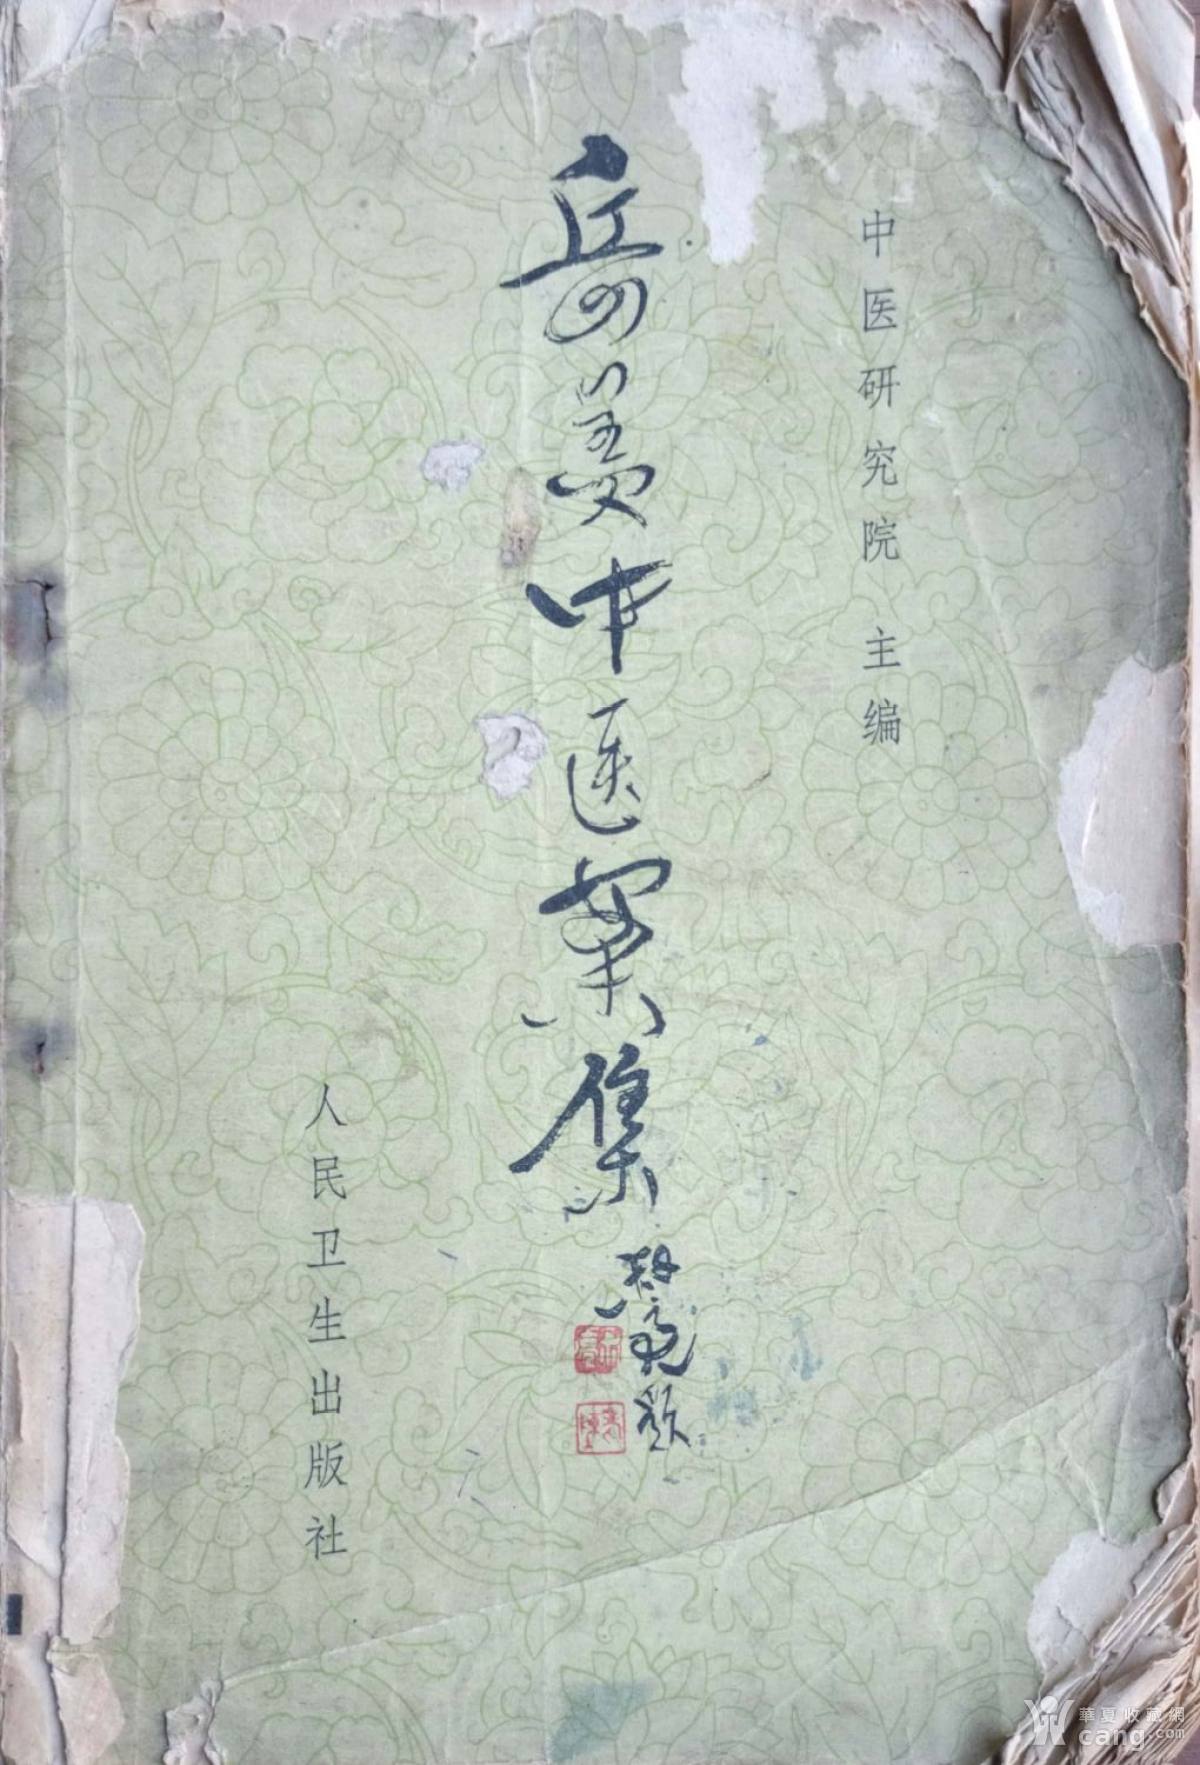 中医研究院 主编
岳美中医案集
楚亮题
人民卫生出版社
華夏收藏網
cang.com